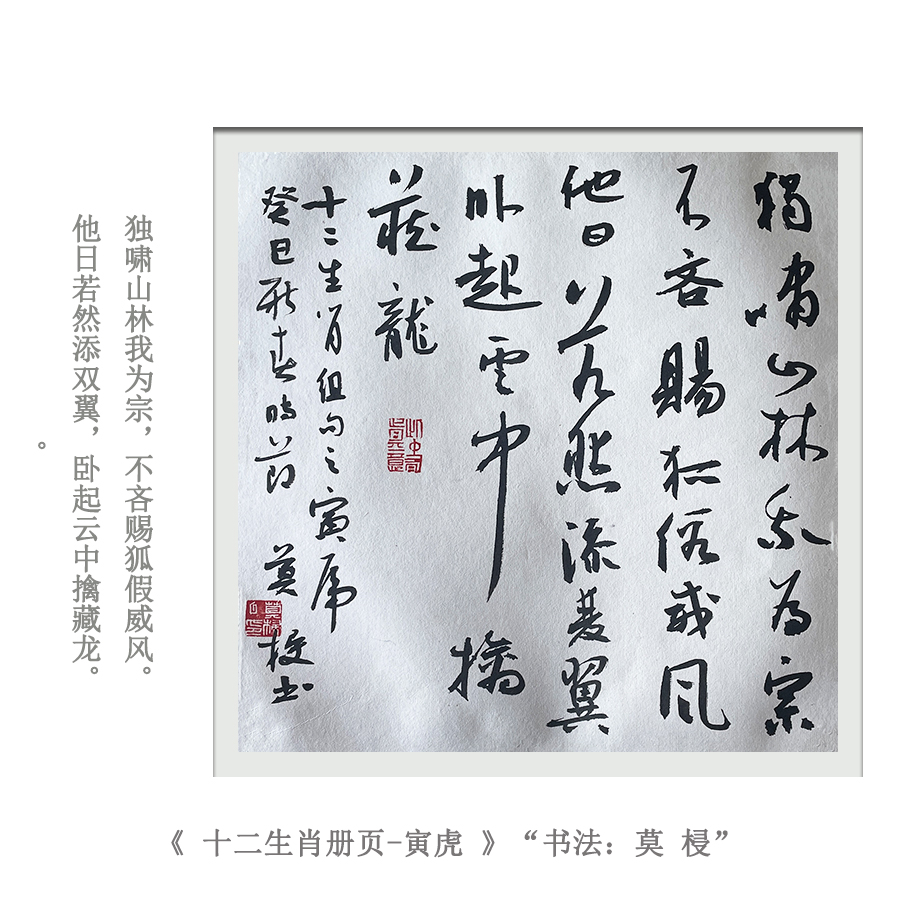 獨嘯山林我为宗
不吝賜狐假威风
他日若然添雙翼
卧起雲中擒
藏龍
十二生肖组句之寅虎
癸巳春时节 莫梫书
独啸山林我为宗，不吝赐狐假威风。
他日若然添双翼，卧起云中擒藏龙。
。
《 十二生肖册页-寅虎 》“书法：莫 梫”